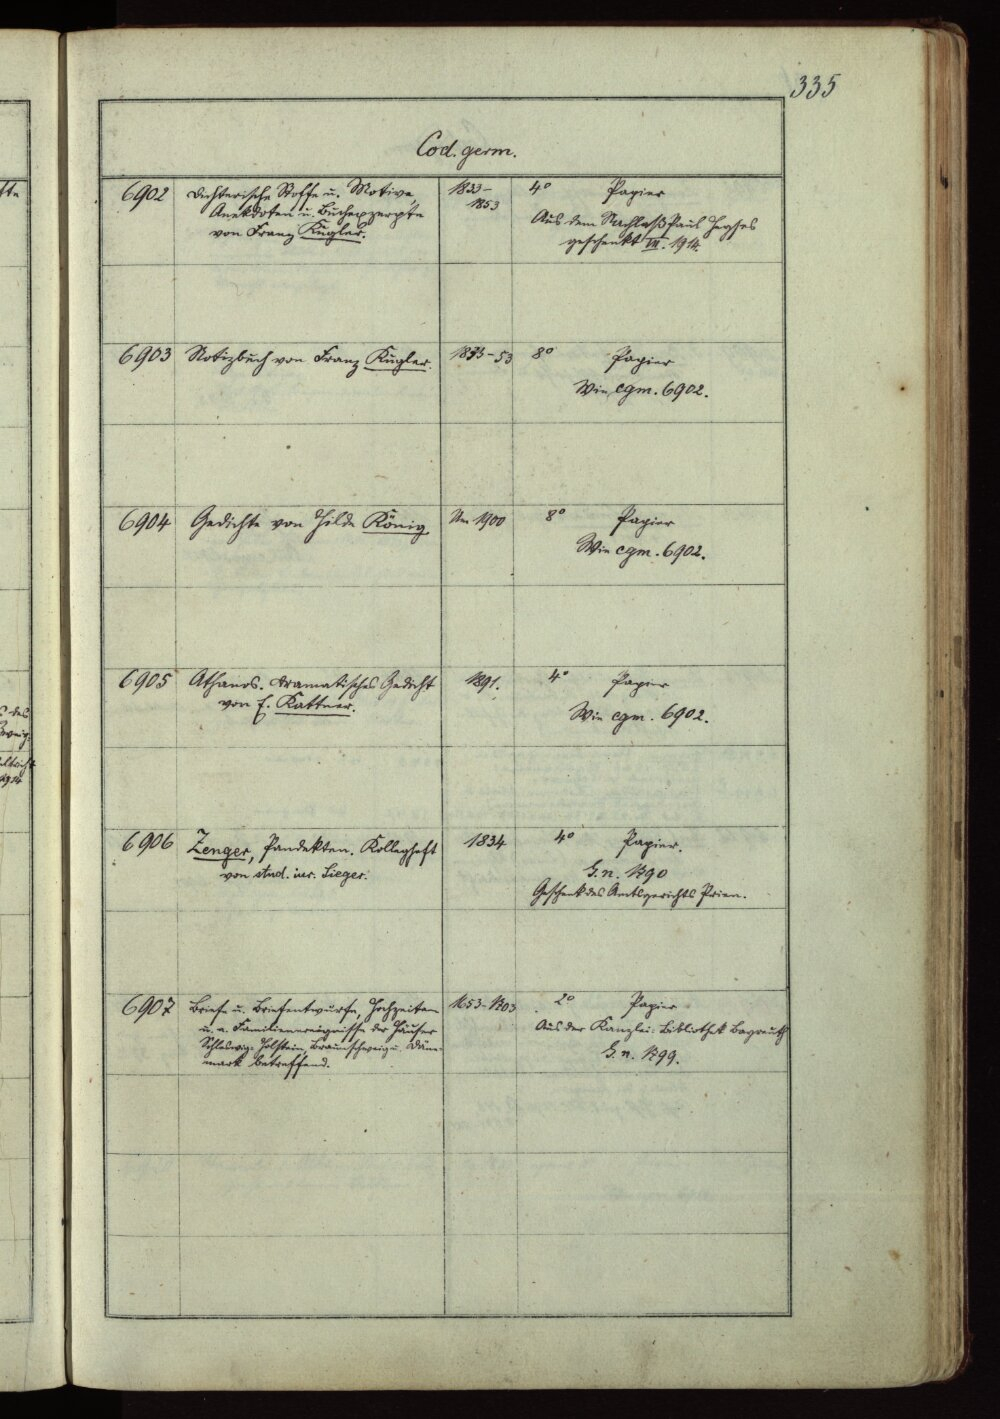 335
Cod. germ.
6902 Dichterische Stoffe u. Motive, 1833- 4° Papier
Anekdoten u. Buchexzerpte 1853 Aus dem Nachlaß Paul Heyses
von Franz Kugler. geschenkt VII. 1914.
6903 Notizbuch von Franz Kugler. 1833-53 8° Papier
Wie cgm. 6902.
6904 Gedichte von Hilde König Um 1900 8° Papier
Wie cgm. 6902.
6905 Athanos. Dramatisches Gedicht 1891. 4° Papier
von E. Kattner. Wie cgm. 6902.
6906 Zenger, Pandekten. Kollegheft 1834 4° Papier.
von stud. iur. Sieger. G. n. 1790
Geschenk des Amtsgerichts Prien.
6907 Briefe u. Briefentwürfe, Hochzeiten 1653-1703 2° Papier
u. a. Familienereignisse der Häuser Aus der Kanzlei-Bibliothek Bayreuth
Schleswig-Holstein, Braunschweig u. Däne- G. n. 1799.
mark betreffend.